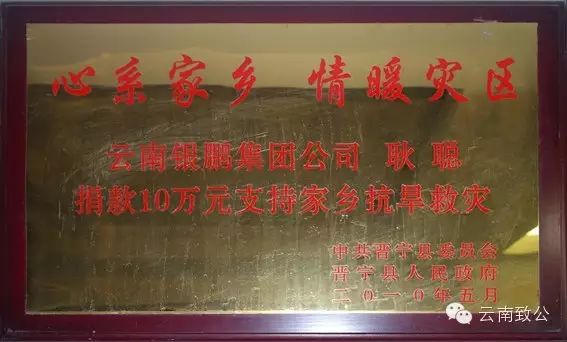 心系家乡 情暖灾区
云南银鹏集团公司 耿聪
捐款10万元支持家乡抗旱救灾
中共晋宁县委员会
晋宁县人民政府
二〇一〇年五月
云南致公